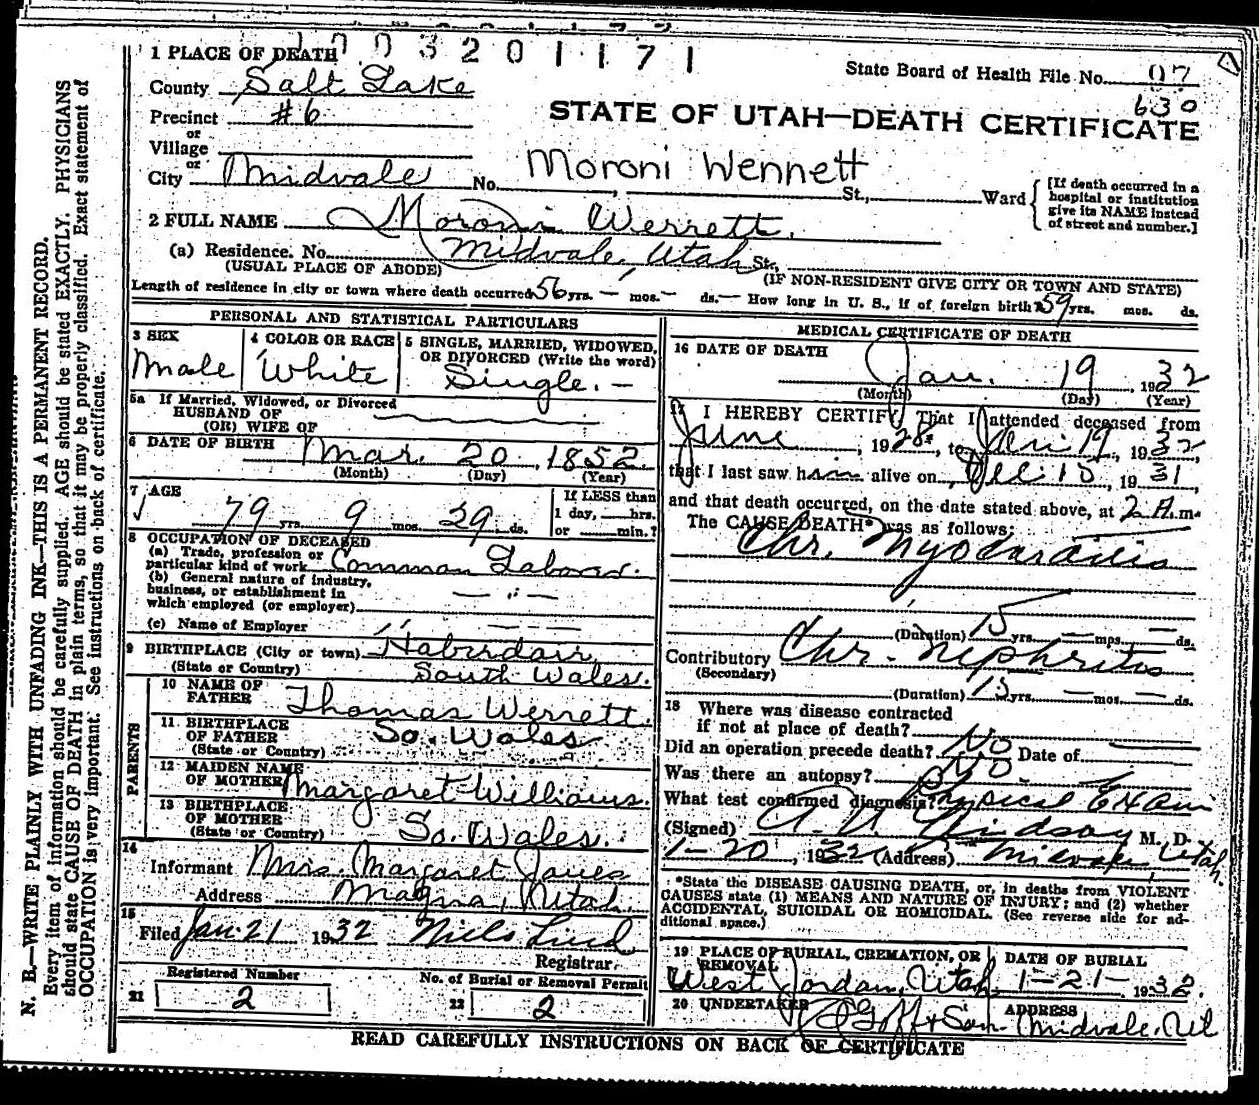 1 PLACE OF DEATH
003201171
State Board of Health File No. 07
630
County Salt Lake
Precinct #6
STATE OF UTAH—DEATH CERTIFICATE
or
Village
or
City Midvale No. , St., Ward
Moroni Wennett
[If death occurred in a
hospital or institution
give its NAME instead
of street and number.]
2 FULL NAME Moroni Werrett.
(a) Residence. No. Midvale, Utah St.,
(USUAL PLACE OF ABODE) (IF NON-RESIDENT GIVE CITY OR TOWN AND STATE)
Length of residence in city or town where death occurred 56 yrs. — mos. — ds. — How long in U. S., if of foreign birth? 59 yrs. mos. ds.
PERSONAL AND STATISTICAL PARTICULARS
3 SEX
Male
4 COLOR OR RACE
White
5 SINGLE, MARRIED, WIDOWED,
OR DIVORCED (Write the word)
Single. —
5a If Married, Widowed, or Divorced
HUSBAND OF
(OR) WIFE OF
6 DATE OF BIRTH Mar. 20, 1852
(Month) (Day) (Year)
7 AGE
79 yrs. 9 mos. 29 ds.
If LESS than
1 day, hrs.
or min.?
8 OCCUPATION OF DECEASED
(a) Trade, profession or
particular kind of work Common Laborer.
(b) General nature of industry,
business, or establishment in
which employed (or employer)
(c) Name of Employer
9 BIRTHPLACE (City or town)
(State or Country) South Wales.
PARENTS
10 NAME OF
FATHER Thomas Werrett.
11 BIRTHPLACE
OF FATHER So. Wales
(State or Country)
12 MAIDEN NAME
OF MOTHER Margaret Williams.
13 BIRTHPLACE
OF MOTHER
(State or Country) So. Wales.
14
Informant Mrs. Margaret Jones
Address Magna, Utah.
15
Filed Jan 21 1932 Niels Lind
Registrar.
Registered Number
21 2
No. of Burial or Removal Permit
22 2
MEDICAL CERTIFICATE OF DEATH
16 DATE OF DEATH
Jan. 19, 1932
(Month) (Day) (Year)
17 I HEREBY CERTIFY, That I attended deceased from
June, 1928, to Jan 19, 1932,
that I last saw him alive on, 1931,
and that death occurred, on the date stated above, at 2 A.m.
The CAUSE DEATH* was as follows:
Chr. Myocarditis
(Duration) 15 yrs. — mos. — ds.
Contributory Chr. Nephritis
(Secondary)
(Duration) 15 yrs. — mos. — ds.
18 Where was disease contracted
if not at place of death?
Did an operation precede death? No Date of
Was there an autopsy? No.
What test confirmed diagnosis? Physical Exam
(Signed) Lindsay M. D.
1-20, 1932 (Address) Midvale, Utah.
*State the DISEASE CAUSING DEATH, or, in deaths from VIOLENT
CAUSES state (1) MEANS AND NATURE OF INJURY; and (2) whether
ACCIDENTAL, SUICIDAL OR HOMICIDAL. (See reverse side for ad-
ditional space.)
19 PLACE OF BURIAL, CREMATION, OR
REMOVAL
West Jordan, Utah.
DATE OF BURIAL
1-21- 1932.
20 UNDERTAKER
Goff & Son
ADDRESS
Midvale, Ut
READ CAREFULLY INSTRUCTIONS ON BACK OF CERTIFICATE
N. B.—WRITE PLAINLY WITH UNFADING INK—THIS IS A PERMANENT RECORD.
Every item of information should be carefully supplied. AGE should be stated EXACTLY. PHYSICIANS
should state CAUSE OF DEATH in plain terms, so that it may be properly classified. Exact statement of
OCCUPATION is very important. See instructions on back of certificate.